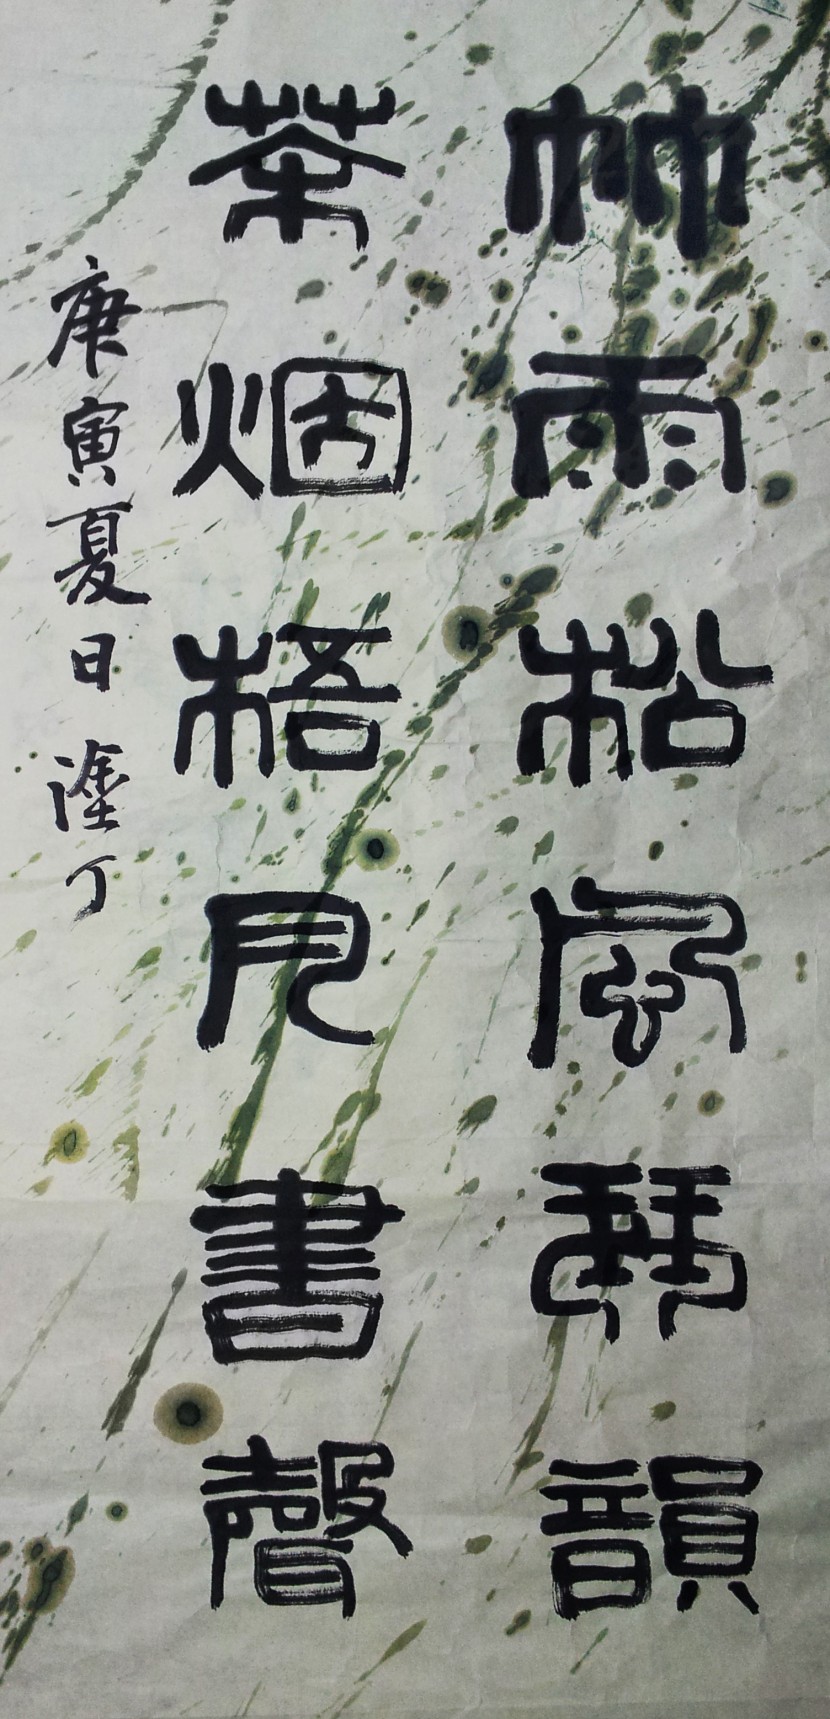 竹雨松風琴韻
茶烟梧月書聲
庚寅夏日塗丁